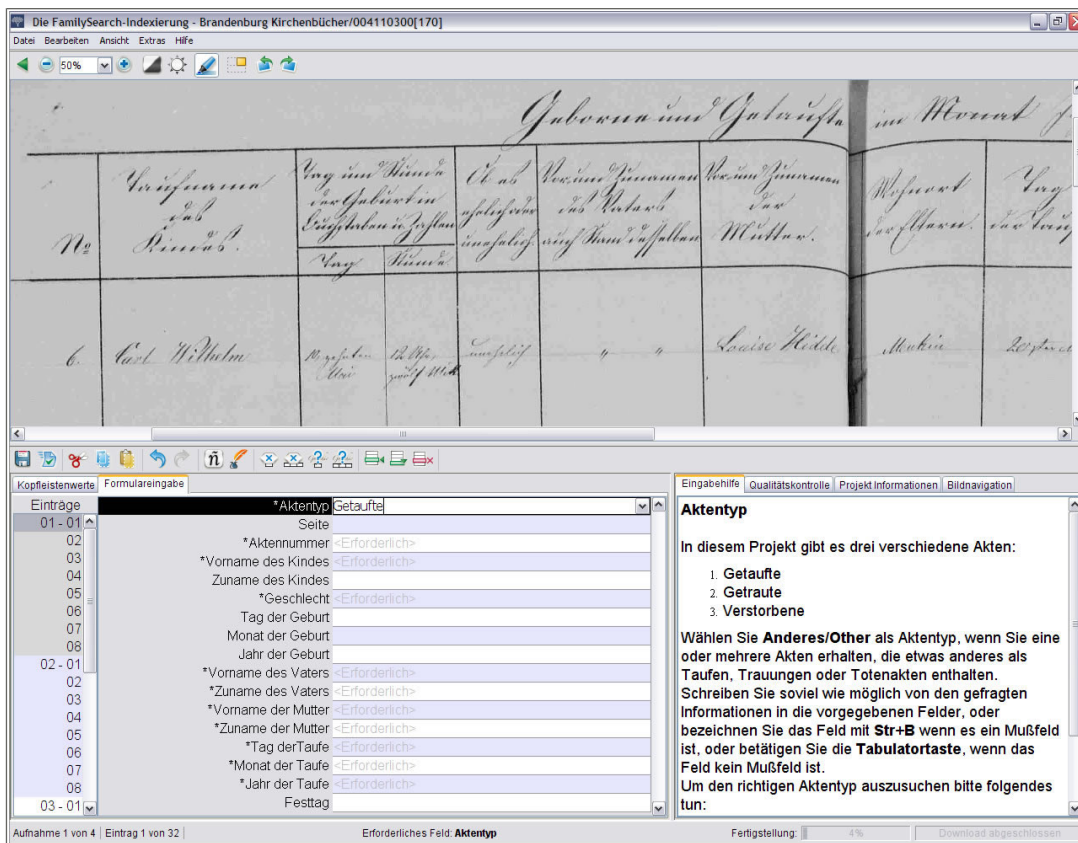 Die FamilySearch-Indexierung - Brandenburg Kirchenbücher/004110300[170]
Datei Bearbeiten Ansicht Extras Hilfe
50%
Geborne und Getaufte im Monat
No
Taufname
des
Kindes.
Tag und Stunde
der Geburt in
Buchstaben u. Zahlen
Tag Stunde
Ob es
ehelich oder
unehelich
Vor und Zunamen
des Vaters
auch Stand desselben
Vor und Zunamen
der
Mutter.
Wohnort
der Eltern.
Tag
der Tauf
6. Carl Wilhelm
10. zehnten
Mai
12 Uhr,
zwölf Mitt.
unehelich
" "
Louise Hidde
Menkin
Kopfleistenwerte Formulareingabe
Einträge
01 - 01
02
03
04
05
06
07
08
02 - 01
02
03
04
05
06
07
08
03 - 01
*Aktentyp Getaufte
Seite
*Aktennummer <Erforderlich>
*Vorname des Kindes <Erforderlich>
Zuname des Kindes
*Geschlecht <Erforderlich>
Tag der Geburt
Monat der Geburt
Jahr der Geburt
*Vorname des Vaters <Erforderlich>
*Zuname des Vaters <Erforderlich>
*Vorname der Mutter <Erforderlich>
*Zuname der Mutter <Erforderlich>
*Tag derTaufe <Erforderlich>
*Monat der Taufe <Erforderlich>
*Jahr der Taufe <Erforderlich>
Festtag
Eingabehilfe Qualitätskontrolle Projekt Informationen Bildnavigation
Aktentyp
In diesem Projekt gibt es drei verschiedene Akten:
1. Getaufte
2. Getraute
3. Verstorbene
Wählen Sie Anderes/Other als Aktentyp, wenn Sie eine
oder mehrere Akten erhalten, die etwas anderes als
Taufen, Trauungen oder Totenakten enthalten.
Schreiben Sie soviel wie möglich von den gefragten
Informationen in die vorgegebenen Felder, oder
bezeichnen Sie das Feld mit Str+B wenn es ein Mußfeld
ist, oder betätigen Sie die Tabulatortaste, wenn das
Feld kein Mußfeld ist.
Um den richtigen Aktentyp auszusuchen bitte folgendes
tun:
Aufnahme 1 von 4 Eintrag 1 von 32 Erforderliches Feld: Aktentyp Fertigstellung: 4% Download abgeschlossen